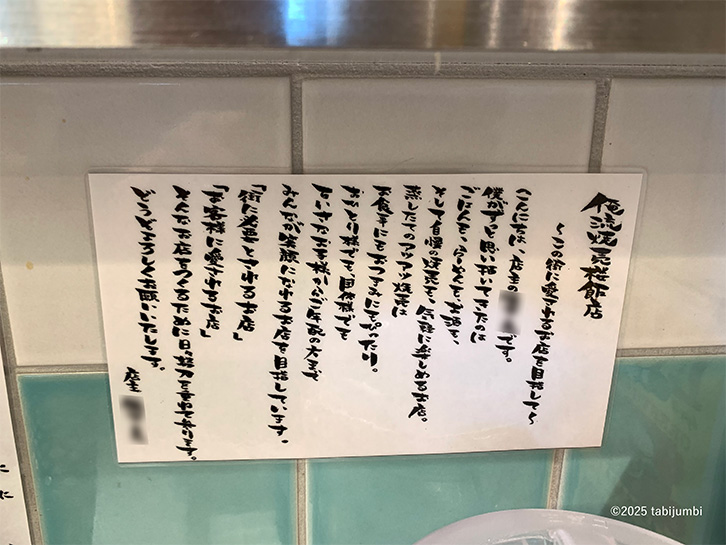 俺流焼売楼飯店
〜この街に愛されるお店を目指して〜
こんにちは、店主の です。
僕がずっと思い描いてきたのは
ごはんも、らーめんも、お酒も、
そして自慢の焼売も、気軽に楽しめるお店。
蒸したてのアツアツ焼売は
お食事にもおつまみにもぴったり。
おひとり様でも、団体様でも
小さなお子様からご年配の方まで
みんなが笑顔になれるお店を目指しています。
「街に必要とされるお店」
「お客様に愛されるお店」
そんなお店をつくるために日々努力を重ねて参ります。
どうぞよろしくお願いいたします。
店主
に
に
©2025 tabijumbi